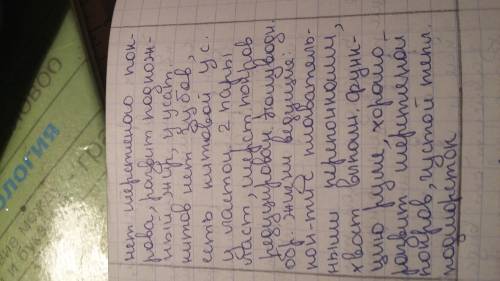 нет шерстеного пок-
рова, развит подкож-
ный жир, у усат.
китов нет зубов,
есть китовой ус.
У ластон. 2 пары
ласт, шерст. покров
редуцирован. Полувод.
обр. жизни ведущие:
кон-ти с плаватель-
ными перепонками,
хвост выполн. функ-
цию руля, хорошо
развит шерстеной
покров, густой тепл.
подшерсток
ология